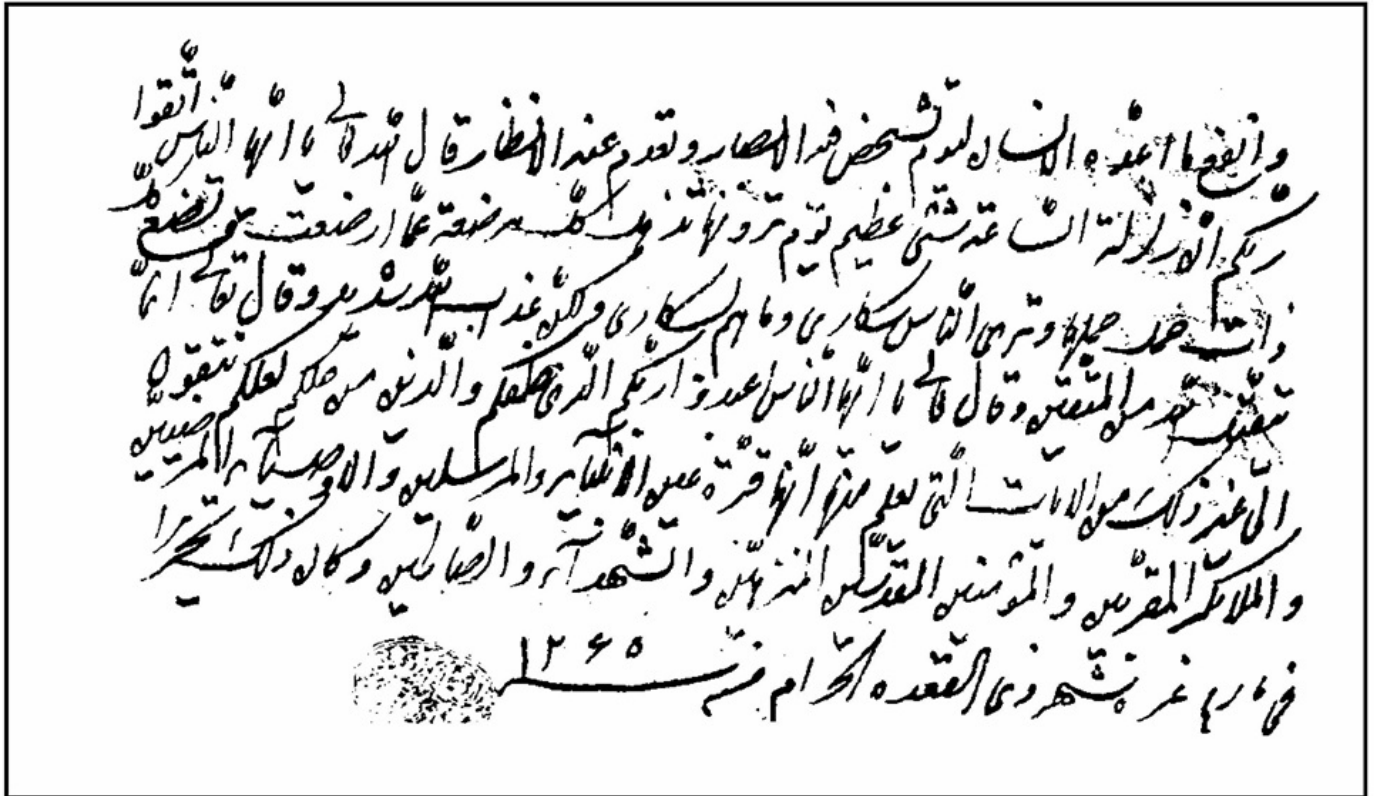 وانفع ما اعدّه الانسان ليوم تشخص فيه الابصار وتقدم عند الانظار قال الله تعالى يا ايّها النّاس اتّقوا
ربكم انّ زلزلة السّاعة شئ عظيم يوم ترونها تذهل كلّ مرضعة عمّا ارضعت وتضع كلّ
ذات حمل حملها وترى النّاس سكارى وما هم بسكارى ولكنّ عذاب الله شديد وقال تعالى انّما
يتقبّل الله من المتّقين وقال تعالى يا ايّها النّاس اعبدوا ربّكم الّذى خلقكم والّذين من قبلكم لعلكم تتّقون
الى غير ذلك من الايات الّتى يعلم منها انّها قرّة عين الانبياء والمرسلين والاوصياء المرضيين
والملائكة المقرّبين والمؤمنين المقدّسين المنزهين والشّهداء والصّالحين وكان ذلك تحريرا
فى تاريخ غرة شهر ذى القعدة الحرام سنة ۱۲۶۵